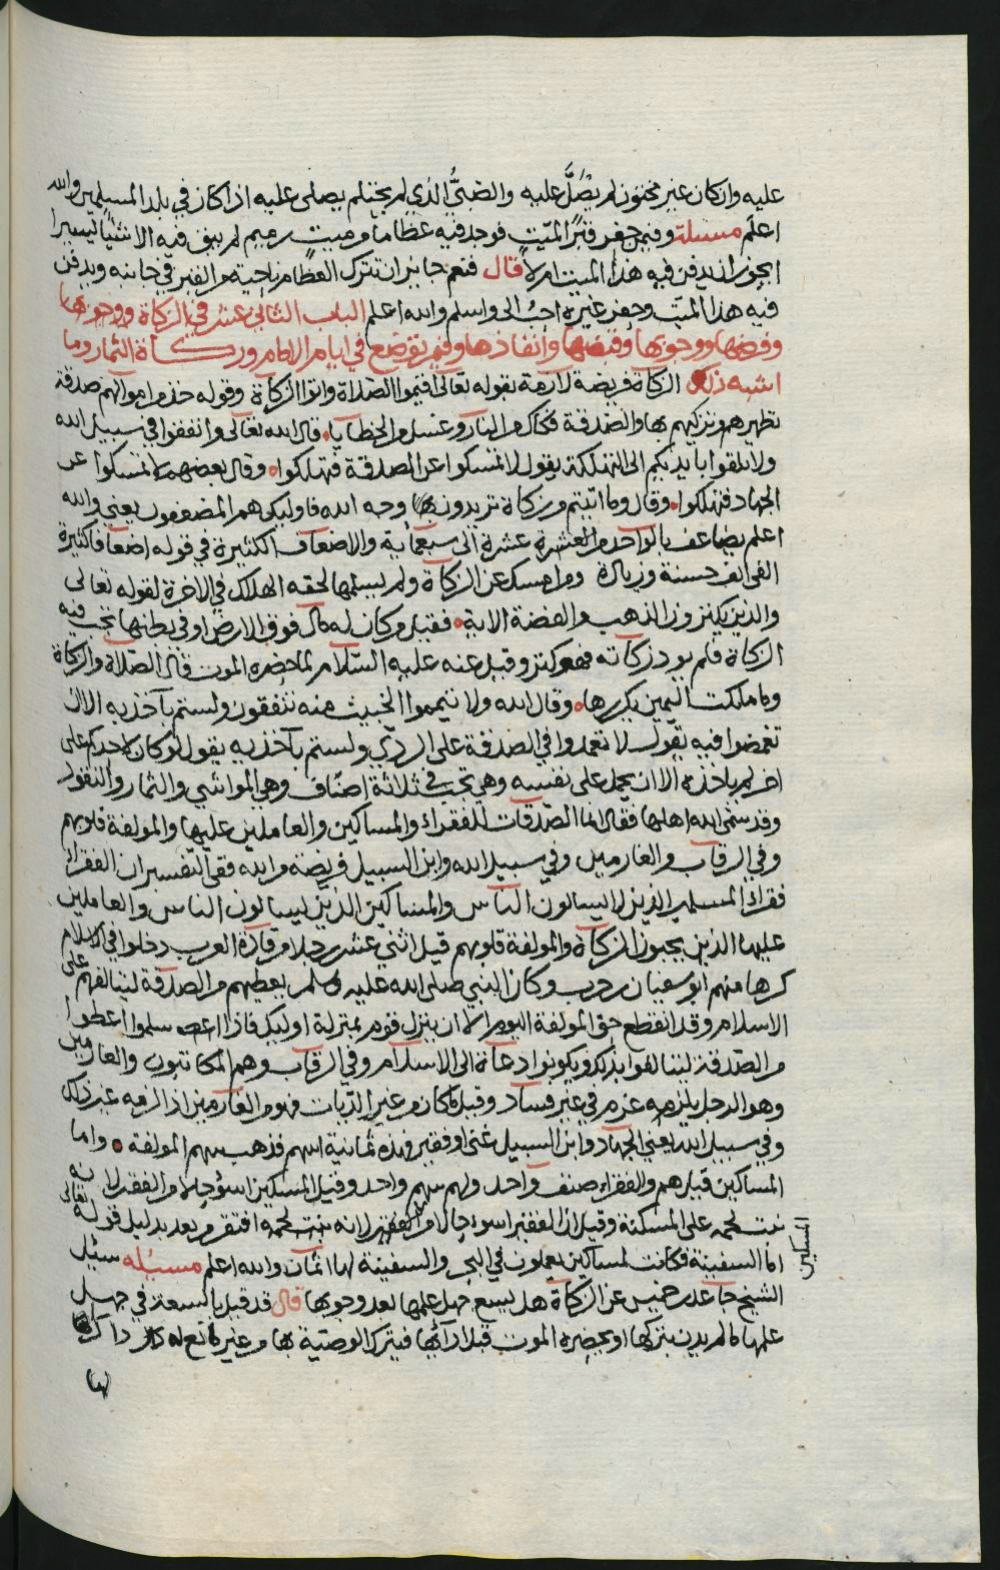 عليه وان كان غير مختون لم يصل عليه والصبي الذي لم يختتم يصلى عليه اذا كان في بلد المسلمين والله
اعلم مسئلة وفيمن حفر قبرا لميت فوجد فيه عظاما من ميت رميم لم يبق فيه الا شيئا يسيرا
ايجوز ان يدفن فيه هذا الميت ام لا قال فنعم جايز ان تترك العظام ناحية من القبر في جانبه ويدفن
فيه هذا الميت وحفر غيره احب الي واسلم والله اعلم الباب الثاني عشر في الزكاة ووجوبها
وفرضها ووجوبها وقبضها وانفاذها وفيم توضع في ايام الامام وزكاة الثمار وما
اشبه ذلك الزكاة فريضة لازمة بقوله تعالى اقيموا الصلاة واتوا الزكاة وقوله خذ من اموالهم صدقة
تطهرهم وتزكيهم بها والصدقة فكاك من النار وغسل من الخطايا قال الله تعالى وانفقوا في سبيل الله
ولا تلقوا بايديكم الى التهلكة يقول لا تمسكوا عن الصدقة فتهلكوا وقال بعضهم لا تمسكوا عن
الجهاد فتهلكوا وقال وما اتيتم من زكاة تريدون بها وجه الله فاوليك هم المضعفون يعني والله
اعلم يضاعف بالواحد من العشرة عشرة الى سبعماية والاضعاف الكثيرة في قوله اضعافا كثيرة
الفي الف حسنة وزيادة ومن امسك عن الزكاة ولم يسلمها لحقه الهلاك في الاخرة لقوله تعالى
والذين يكنزون الذهب والفضة الاية فقيل من كان له مال فوق الارض او في بطنها تجب فيه
الزكاة فلم يود زكاته فهو كنز وقيل عنه عليه السلام لما حضره الموت قال الصلاة والزكاة
وما ملكت اليمين يكررها وقال الله ولا تيمموا الخبيث منه تنفقون ولستم بآخذيه الا ان
تغمضوا فيه يقول لا تعمدوا في الصدقة على الردي ولستم بآخذيه يقول لو كان لاحدكم على
احد لم ياخذه الا ان يحمل على نفسه وهي تجب في ثلاثة اصناف وهي المواشي والثمار والنقود
وقد سمى الله اهلها فقال انما الصدقات للفقراء والمساكين والعاملين عليها والمولفة قلوبهم
وفي الرقاب والغارمين وفي سبيل الله وابن السبيل فريضة من الله ففي التفسير ان الفقراء
فقراء المسلمين الذين لا يسالون الناس والمساكين الذين يسالون الناس والعاملين
عليها الذين يجبون الزكاة والمولفة قلوبهم قيل اثني عشر رجلا من قادة العرب دخلوا في الاسلام
كرها منهم ابو سفيان بن حرب وكان النبي صلى الله عليه وسلم يعطيهم من الصدقة ليتالفهم على
الاسلام وقد انقطع حق المولفة اليوم الا ان ينزل قوم بمنزلة اوليك فاذا اسلموا اعطوا
من الصدقة ليتالفوا بذلك ويكونوا دعاة الى الاسلام وفي الرقاب وهم المكاتبون والغارمين
وهو الرجل يلزمه غرم في غير فساد وقيل ما كان من غير الديات فهو من الغارمين اذا لزمه غير ذلك
وفي سبيل الله يعني الجهاد وابن السبيل غني او فقير فهذه ثمانية اسهم فذهب سهم المولفة واما
المساكين قيل هم والفقراء صنف واحد ولهم سهم واحد وقيل المسكين اسوء حالا من الفقير لانه
نبت لحمه على المسكنة وقيل ان الفقير اسوء حالا من المساكين لانه نبت لحمه افتقر من بعد بدليل قوله تعالى
اما السفينة فكانت لمساكين يعملون في البحر والسفينة لها اثمان والله اعلم مسئله سئل
الشيخ جاعد بن خميس عن الزكاة هل يسع جهل علمها بعد وجوبها قال قد قيل بالسعة في جهل
علمها ما لم يدن بتركها او يحضره الموت قبل ادائها فيترك الوصية بها من غير مانع له ذاكرا
لها